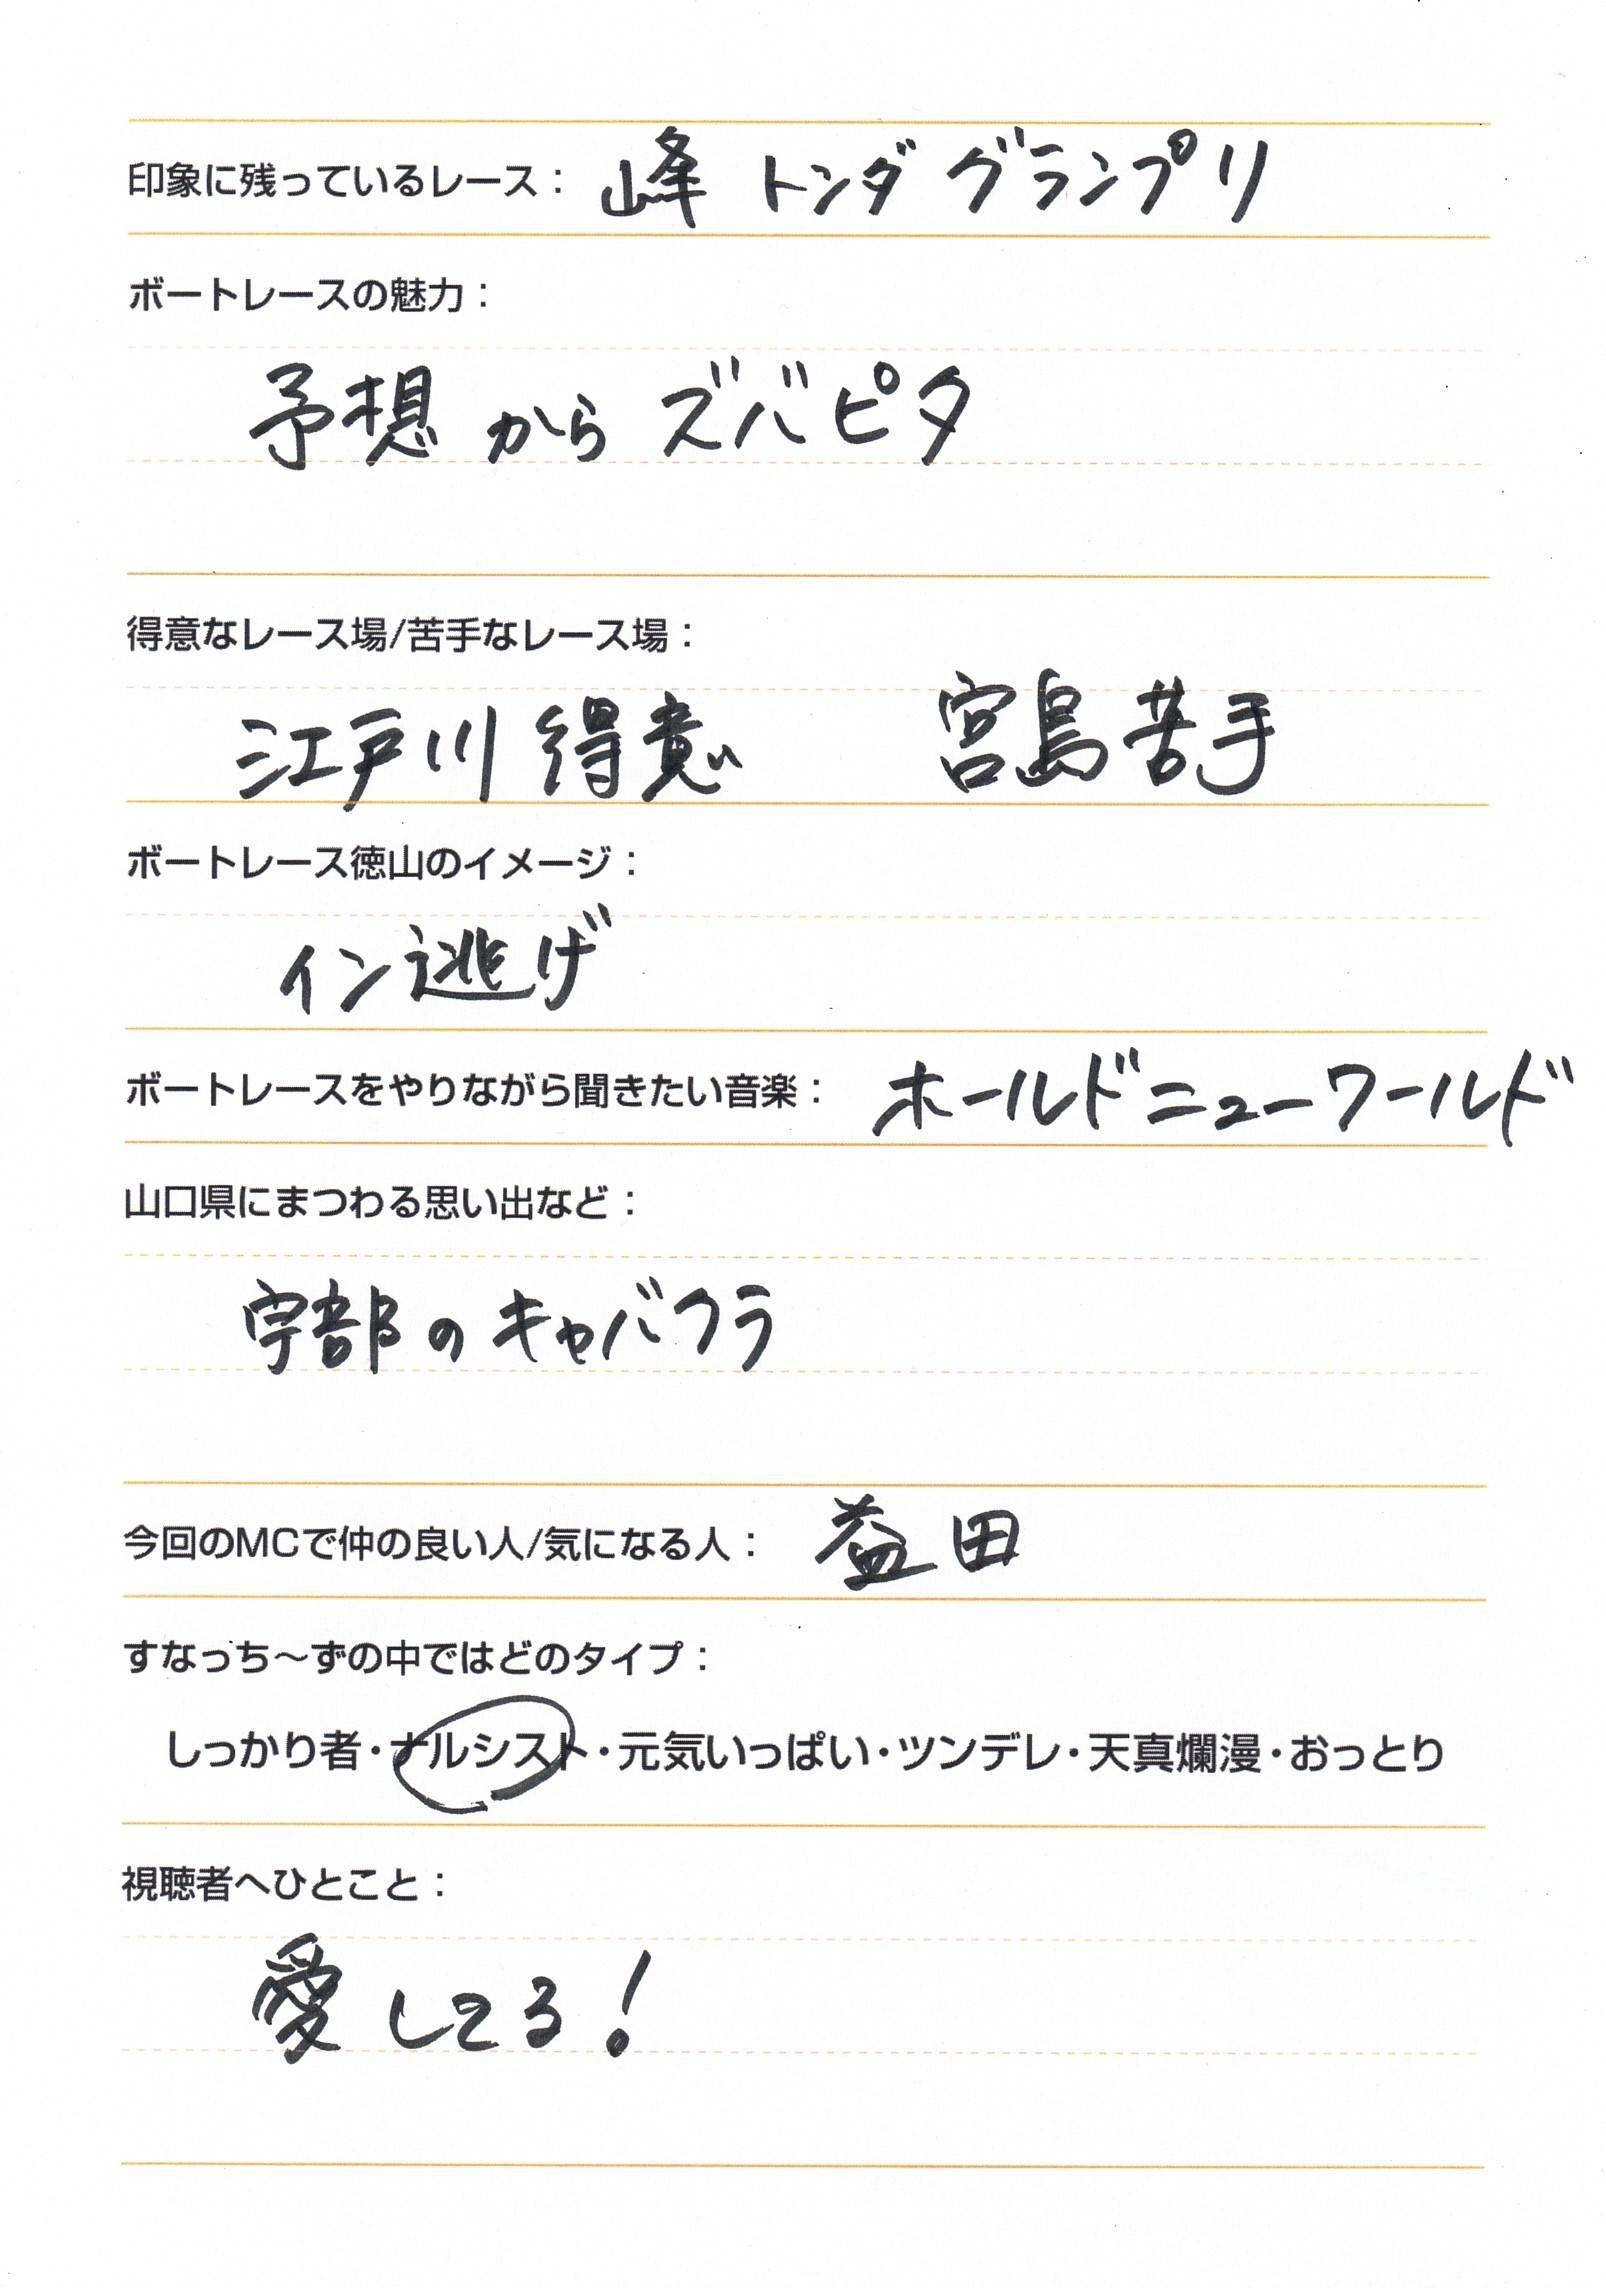 印象に残っているレース： 峰 トンダ グランプリ
ボートレースの魅力：
予想 から ズバピタ
得意なレース場/苦手なレース場：
江戸川 得意 宮島苦手
ボートレース徳山のイメージ：
イン逃げ
ボートレースをやりながら聞きたい音楽： ホールドニューワールド
山口県にまつわる思い出など：
宇部のキャバクラ
今回のMCで仲の良い人/気になる人： 益田
すなっち～ずの中ではどのタイプ：
しっかり者・ナルシスト・元気いっぱい・ツンデレ・天真爛漫・おっとり
視聴者へひとこと：
愛してる！